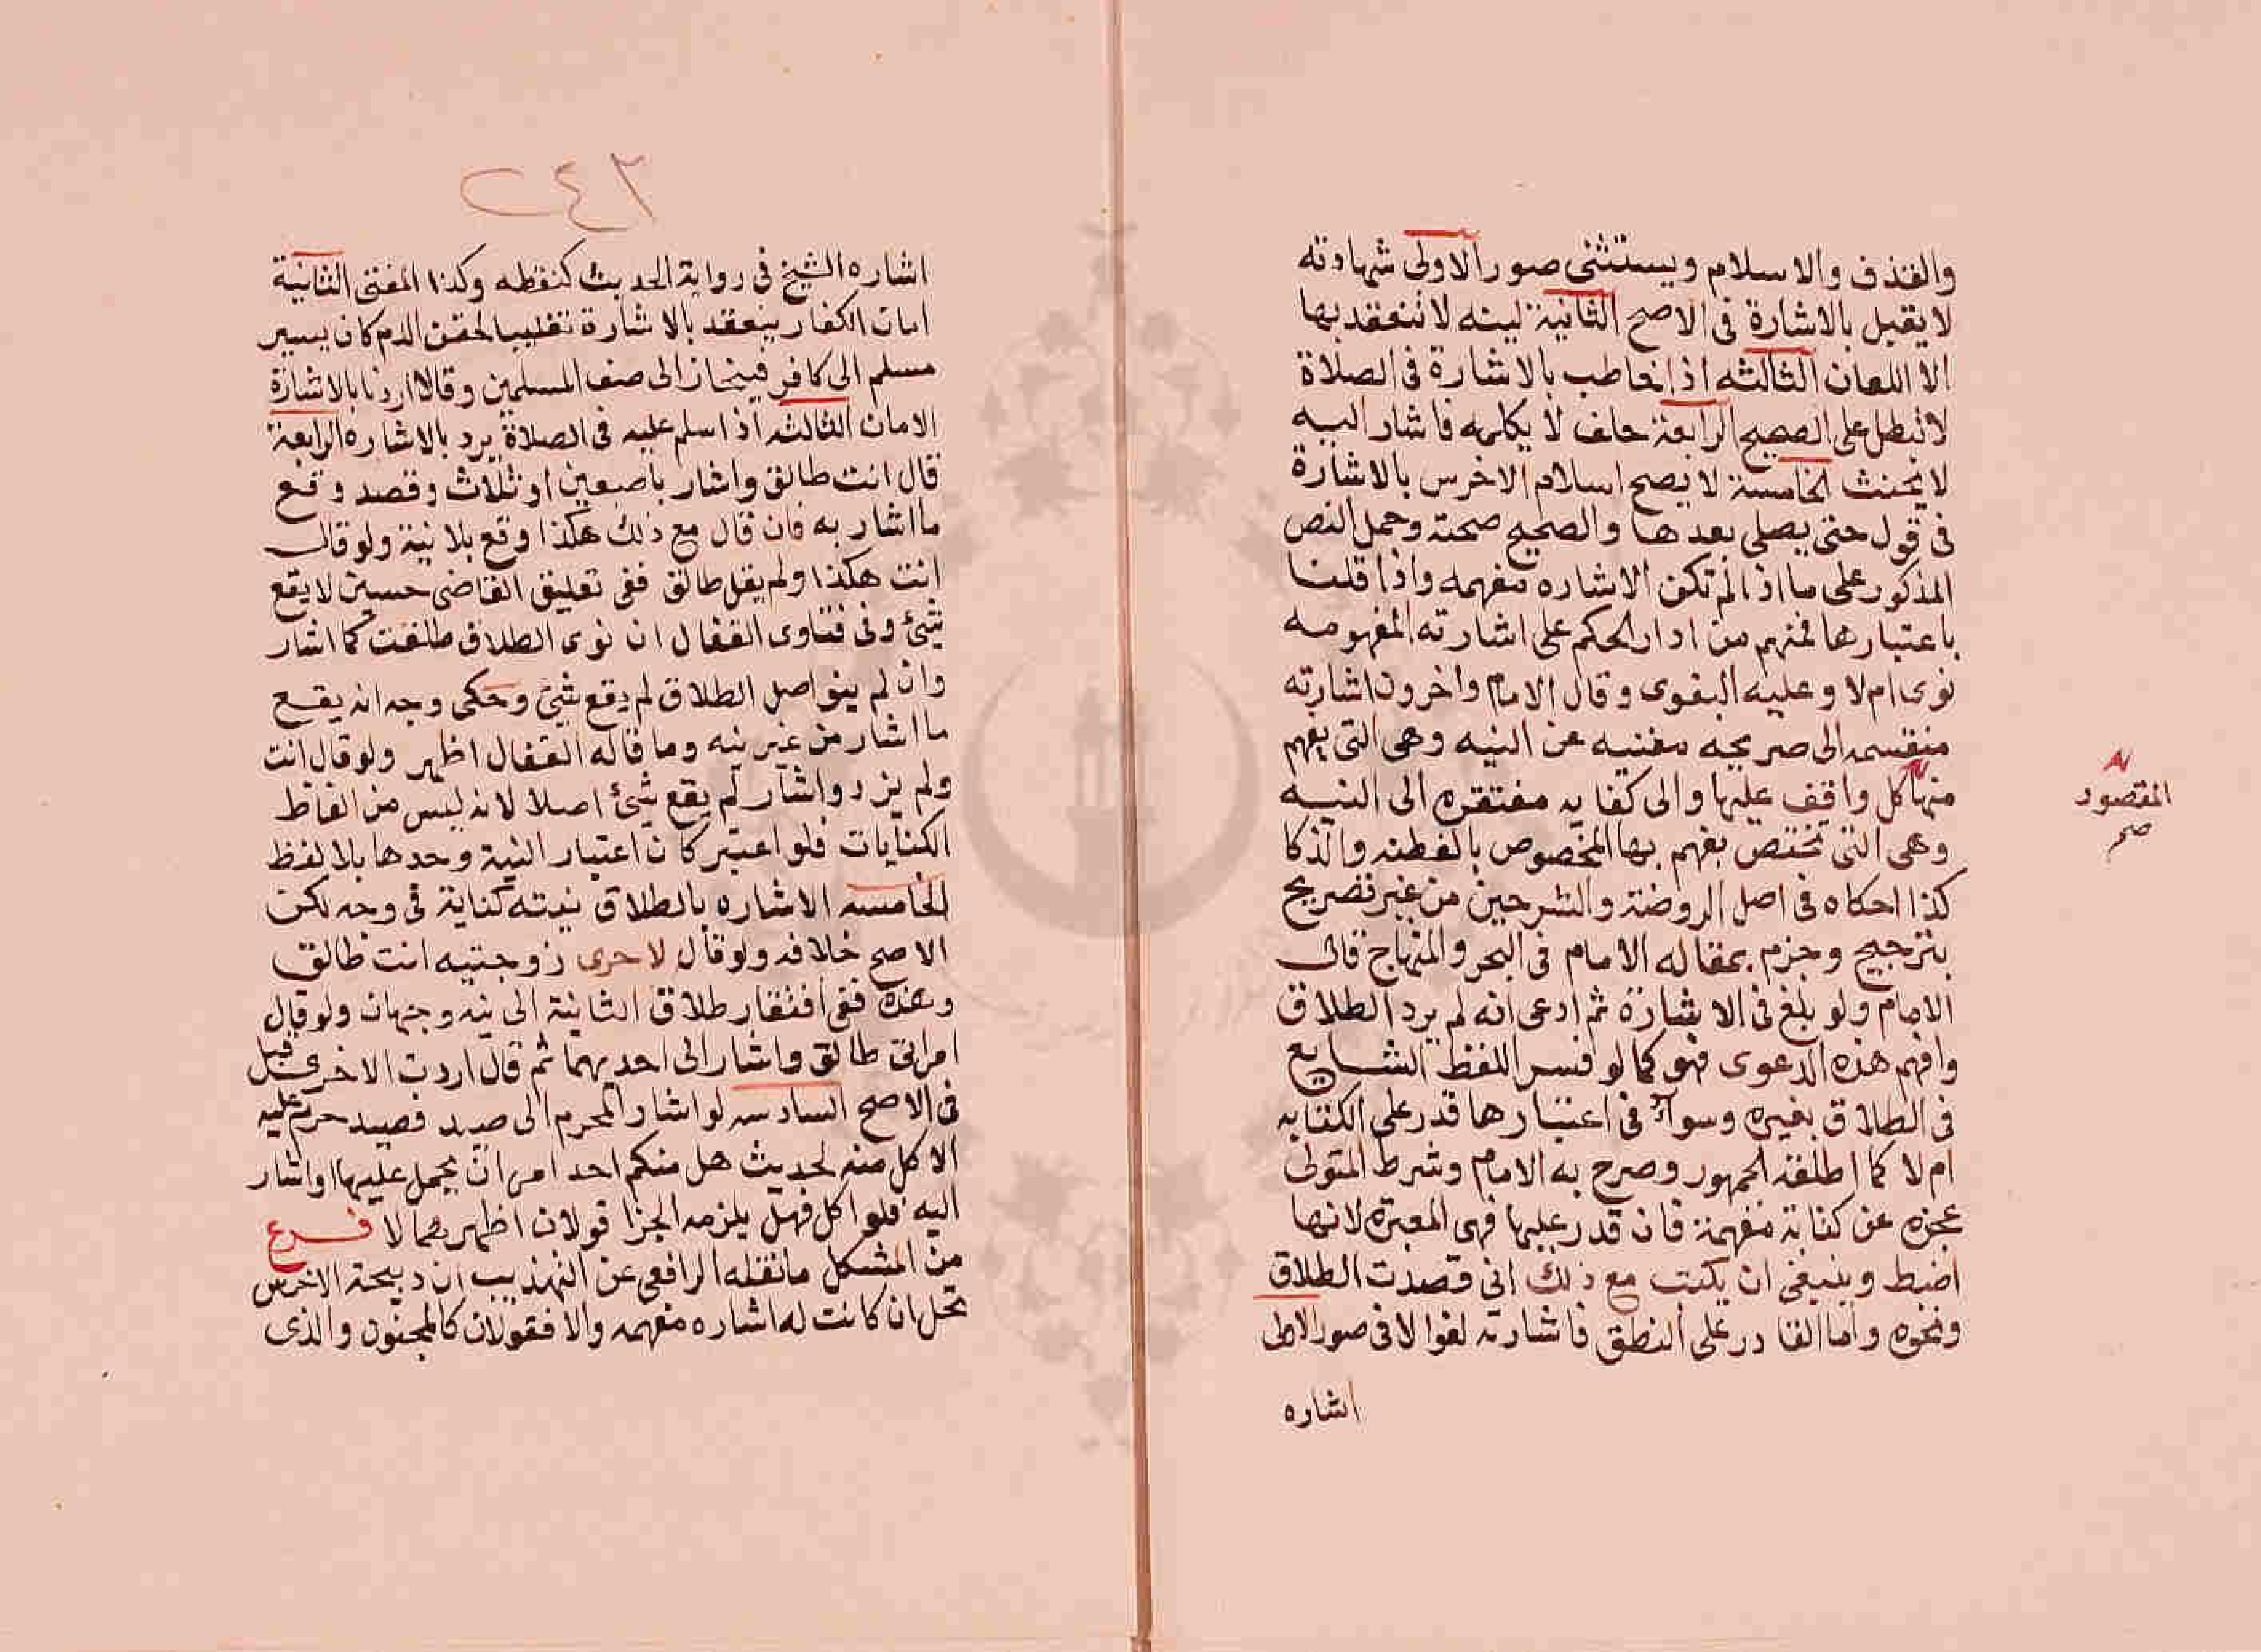 والقذف والاسلام ويستثنى صور الاولى شهادته
لا يقبل بالاشارة فى الاصح الثانية يمينه لا تنعقد بها
الا اللعان الثالثه اذا خاطب بالاشارة فى الصلاة
لا تبطل على الصحيح الرابعة حلف لا يكلمه فاشار اليه
لا يحنث الخامسة لا يصح اسلام الاخرس بالاشارة
فى قول حتى يصلى بعدها والصحيح صحته وحمل النص
المذكور على ما اذا لم تكن الاشاره مفهمه واذا قلنا
باعتبارها فمنهم من ادار الحكم على اشارته المفهومه
نوى ام لا وعليه البغوى وقال الامام واخرون اشارته
منقسمه الى صريحه مغنيه عن النيه وهى التى يفهم
منها كل واقف عليها والى كنايه مفتقره الى النيه
المقصود
صح
وهى التى تختص بفهم بها المخصوص بالفطنه والذكا
كذا احكاه فى اصل الروضة والشرحين من غير تصريح
بترجيح وجزم بمقاله الامام فى البحر والمنهاج قال
الامام ولو بلغ فى الاشارة ثم ادعى انه لم يرد الطلاق
وافهم هذه الدعوى فهو كما لو فسر اللفظ الشايع
فى الطلاق بغيره وسواء فى اعتبارها قدر على الكتابه
ام لا كما اطلقه الجمهور وصرح به الامام وشرط المتولى
عجزه عن كتابة مفهمة فان قدر عليها فهى المعتبره لانها
اضبط وينبغى ان يكتب مع ذلك انى قصدت الطلاق
ونحوه واما القادر على النطق فاشارته لغو الا فى صور الاولى
اشاره
٢٤٣
اشاره الشيخ فى رواية الحديث كنقطه وكذا المفتى الثانية
امان الكفار ينعقد بالاشارة تغليبا لحقن الدم كان يسير
مسلم الى كافر فينحاز الى صف المسلمين وقالا اردنا بالاشارة
الامان الثالثه اذا سلم عليه فى الصلاة يرد بالاشاره الرابعة
قال انت طالق واشار باصبعين او ثلاث وقصد وقع
ما اشار به فان قال مع ذلك هكذا وقع بلا نية ولو قال
انت هكذا ولم يقل طالق ففى تعليق القاضى حسين لا يقع
شئ وفى فتاوى القفال ان نوى الطلاق طلقت كما اشار
وان لم ينو اصل الطلاق لم يقع شئ وحكى وجه انه يقع
ما اشار من غير نيه وما قاله القفال اظهر ولو قال انت
ولم يزد واشار لم يقع شئ اصلا لانه ليس من الفاظ
الكنايات فلو اعتبر كان اعتبار النية وحدها بلا لفظ
الخامسه الاشاره بالطلاق نيته كناية فى وجه لكن
الاصح خلافه ولو قال لاحرى زوجتيه انت طالق
وهذه ففى افتقار طلاق الثانية الى نيه وجهان ولو قال
امراتى طالق واشار الى احديهما ثم قال اردت الاخرى قبل
فى الاصح السادسه لو اشار المحرم الى صيد فصيد حرم عليه
الاكل منه لحديث هل منكم احد امر ان يحمل عليها او اشار
اليه فلو اكل فهل يلزمه الجزا قولان اظهرهما لا فرع
من المشكل ما نقله الرافعى عن التهذيب ان ذبيحة الاخرس
تحل ان كانت له اشاره مفهمه والا فقولان كالمجنون والذى